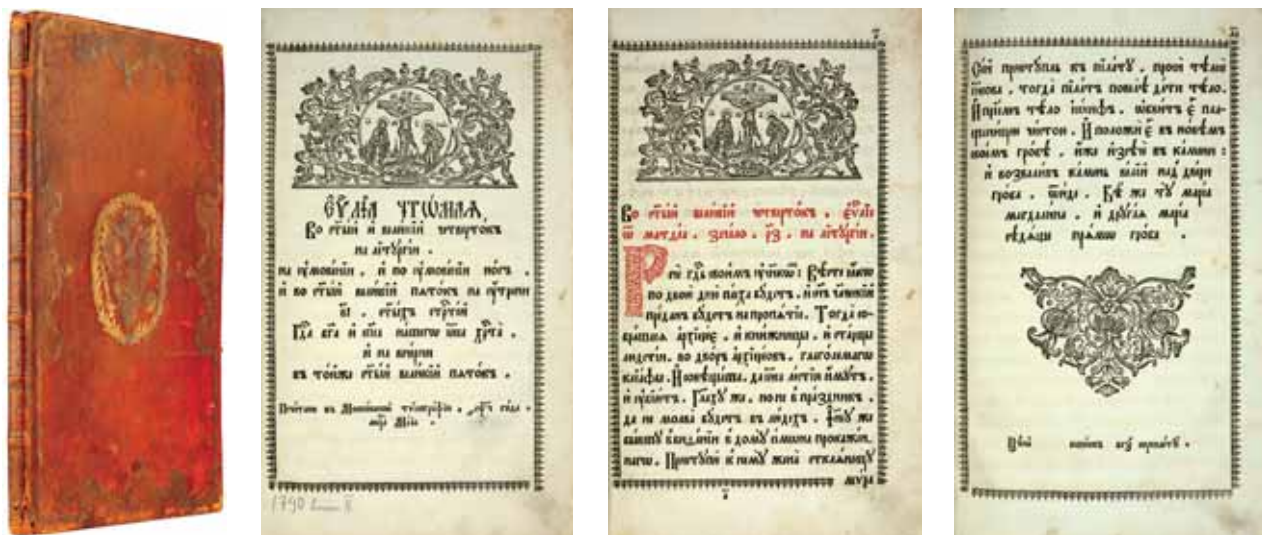 ЕѴⷢ҇ЛІА ЧТѠМАѦ,
Во ст҃ы́й и҆ вели́кїй четверто́къ
на лїтꙋргі́и.
на ᲂу҆мове́нїи, и҆ по ᲂу҆мове́нїи но́гъ.
и҆ во ст҃ы́й вели́кїй пѧто́къ на ᲂу҆́трени
в҃і. ст҃ы́хъ стрⷭ҇те́й
Гдⷭ҇а бг҃а и҆ сп҃са на́шегѡ і҆и҃са хрⷭ҇та̀.
и҆ на вече́рни
въ то́йже ст҃ы́й вели́кїй пѧто́къ.
Печа́тано въ Моско́вской тѷпогра́фїи, ҂аѱч҃ го́да.
мцⷭ҇а Маїа
1790
Во ст҃ы́й вели́кїй четверто́къ. є҆ѵⷢ҇лїе
ѿ матѳе́а. зача́ло. р҃з. на лїтꙋргі́и.
Речѐ гдⷭ҇ь свои̑мъ ᲂу҆чн҃кѡ́мъ: Вѣ́сте ꙗ҆́кѡ
по двою̀ дні́ю па́сха бꙋ́детъ, и҆ сн҃ъ чл҃вѣ́ческїй
пре́данъ бꙋ́детъ на пропѧ́тїе. Тогда̀ со-
бра́шасѧ а҆рхїере́є, и҆ кни́жницы, и҆ ста́рцы
людсті́и, во дво́ръ а҆рхїере́овъ, глаго́лемагѡ
каїа́фы. И҆ совѣща́ша, да і҆и҃са ле́стїю и҆́мꙋтъ,
и҆ ᲂу҆бїю́тъ. Гл҃ахꙋ же, но не в пра́здникъ,
да не молва̀ бꙋ́детъ въ лю́дехъ. І҆и҃сꙋ же
бы́вшꙋ в виѳа́нїи в домꙋ̀ сі́мѡна прокаже́н-
нагѡ. Пристꙋпѝ к немꙋ̀ жена̀ сткля́ницꙋ
мѵ́ра
Се́й пристꙋ́пль къ пїла́тꙋ, просѝ тѣлесѐ
і҆и҃сова, тогда̀ пїла́тъ повелѣ̀ да́ти тѣ́ло.
И҆ прїе́мъ тѣ́ло і҆ѡ́сифъ, ѡ҆бви́тъ є҆̀ пла-
щани́цею чи́стою. И҆ положѝ є҆̀ въ но́вѣмъ
свое́мъ гро́бѣ, и҆́же и҆зсѣчѐ въ ка́мени:
и҆ возвали́въ ка́мень ве́лїй над двє́ри
гро́ба, ѿи́де. Бѣ́ же тꙋ̀ марі́а
магдали́на, и҆ дрꙋга́ѧ марі́а
сѣдѧ́щи прѧ́мѡ гро́ба.